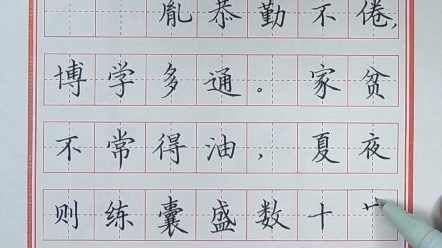 胤恭勤不倦，
博学多通。家贫
不常得油，夏夜
则练囊盛数十